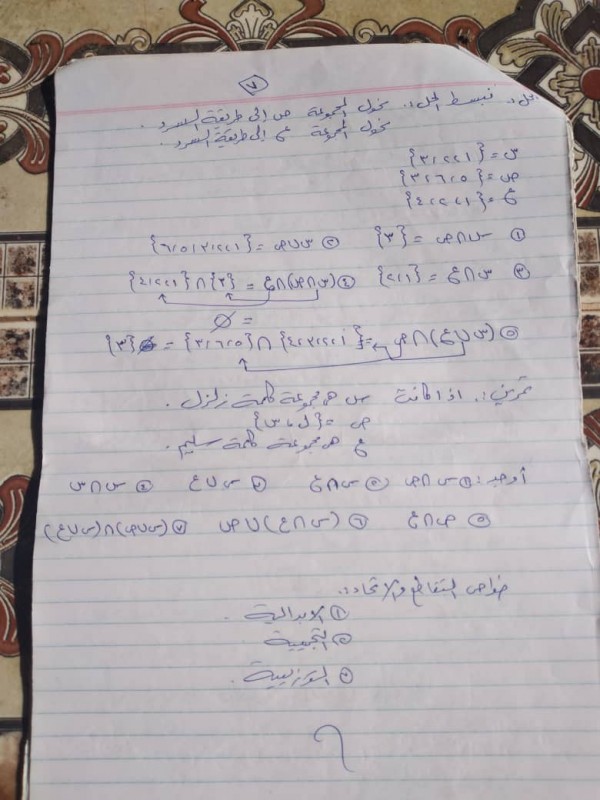 ٧
الحل: نبسط الحل: نحول المجموعة ص إلى طريقة السرد.
نحول المجموعة ع إلى طريقة السرد.
س = {٣،٢،١}
ص = {٣،٦،٥}
ع = {٤،٢،١}
① س∩ص = {٣} ② س∪ص = {٦،٥،٣،٢،١}
③ س∩ع = {٢،١} ④ (س∩ص)∩ع = {٣}∩{٤،٢،١}
= ∅
⑤ (س∪ع)∩ص = {٤،٣،٢،١}∩{٣،٦،٥} = {٣}
تمرين: اذا كانت س هـ مجموعة كلمة زلزل.
ص = {ل،س}
ع هـ مجموعة كلمة سليم.
أوجد: ① س∩ص ② س∩ع ③ س∪ع ④ س∩س
⑤ ص∩ع ⑥ (س∩ع)∪ص ⑦ (س∪ص)∩(س∪ع)
خواص التقاطع والاتحاد:
① الابدالية.
② التجميعية
③ التوزيعية.